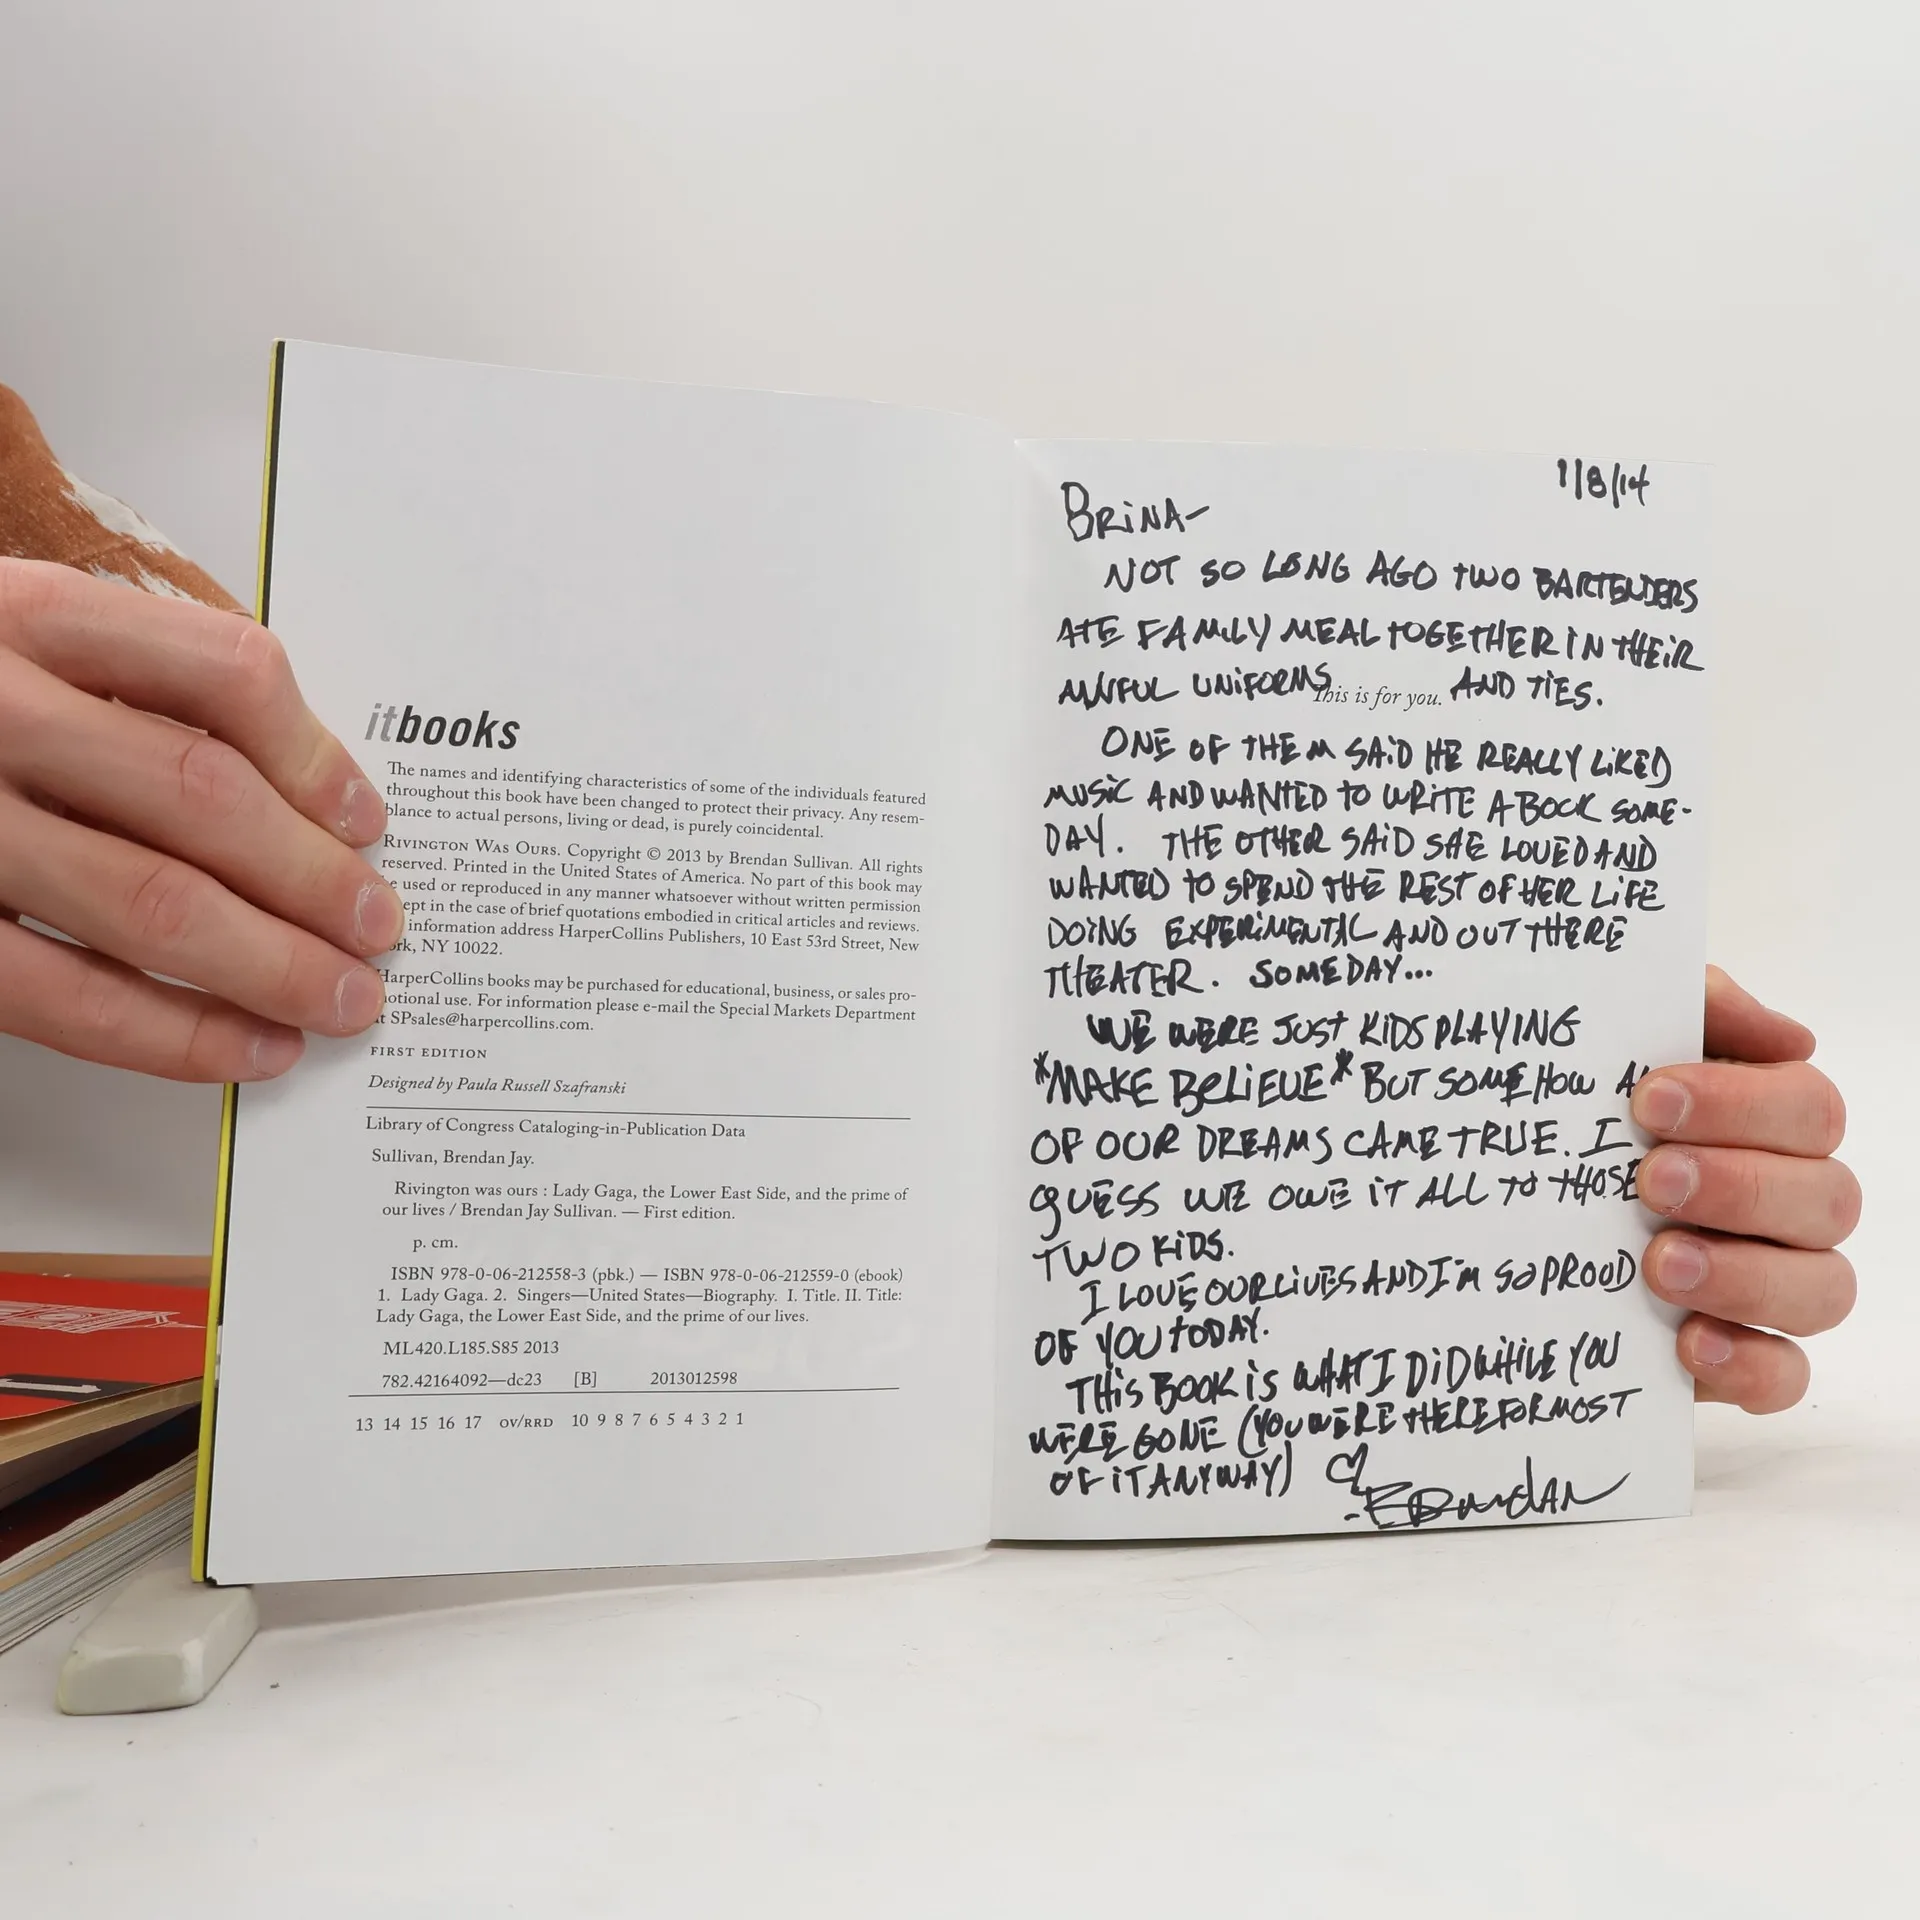 itbooks
The names and identifying characteristics of some of the individuals featured
throughout this book have been changed to protect their privacy. Any resem-
blance to actual persons, living or dead, is purely coincidental.
RIVINGTON WAS OURS. Copyright © 2013 by Brendan Sullivan. All rights
reserved. Printed in the United States of America. No part of this book may
used or reproduced in any manner whatsoever without written permission
ept in the case of brief quotations embodied in critical articles and reviews.
information address HarperCollins Publishers, 10 East 53rd Street, New
ork, NY 10022.
HarperCollins books may be purchased for educational, business, or sales pro-
motional use. For information please e-mail the Special Markets Department
at SPsales@harpercollins.com.
FIRST EDITION
Designed by Paula Russell Szafranski
Library of Congress Cataloging-in-Publication Data
Sullivan, Brendan Jay.
Rivington was ours : Lady Gaga, the Lower East Side, and the prime of
our lives / Brendan Jay Sullivan. — First edition.
p. cm.
ISBN 978-0-06-212558-3 (pbk.) — ISBN 978-0-06-212559-0 (ebook)
1. Lady Gaga. 2. Singers—United States—Biography. I. Title. II. Title:
Lady Gaga, the Lower East Side, and the prime of our lives.
ML420.L185.S85 2013
782.42164092—dc23 [B] 2013012598
13 14 15 16 17 OV/RRD 10 9 8 7 6 5 4 3 2 1
1/8/14
BRINA-
NOT SO LONG AGO TWO BARTENDERS
ATE FAMILY MEAL TOGETHER IN THEIR
AWFUL UNIFORMS This is for you. AND TIES.
ONE OF THEM SAID HE REALLY LIKED
MUSIC AND WANTED TO WRITE A BOOK SOME-
DAY. THE OTHER SAID SHE LOVED AND
WANTED TO SPEND THE REST OF HER LIFE
DOING EXPERIMENTAL AND OUT THERE
THEATER. SOMEDAY...
WE WERE JUST KIDS PLAYING
*MAKE BELIEVE* BUT SOMEHOW
OF OUR DREAMS CAME TRUE. I
GUESS WE OWE IT ALL TO THOSE
TWO KIDS.
I LOVE OUR LIVES AND I'M SO PROUD
OF YOU TODAY.
THIS BOOK IS WHAT I DID WHILE YOU
WERE GONE (YOU WERE THERE FOR MOST
OF IT ANYWAY) ♡
-BRENDAN